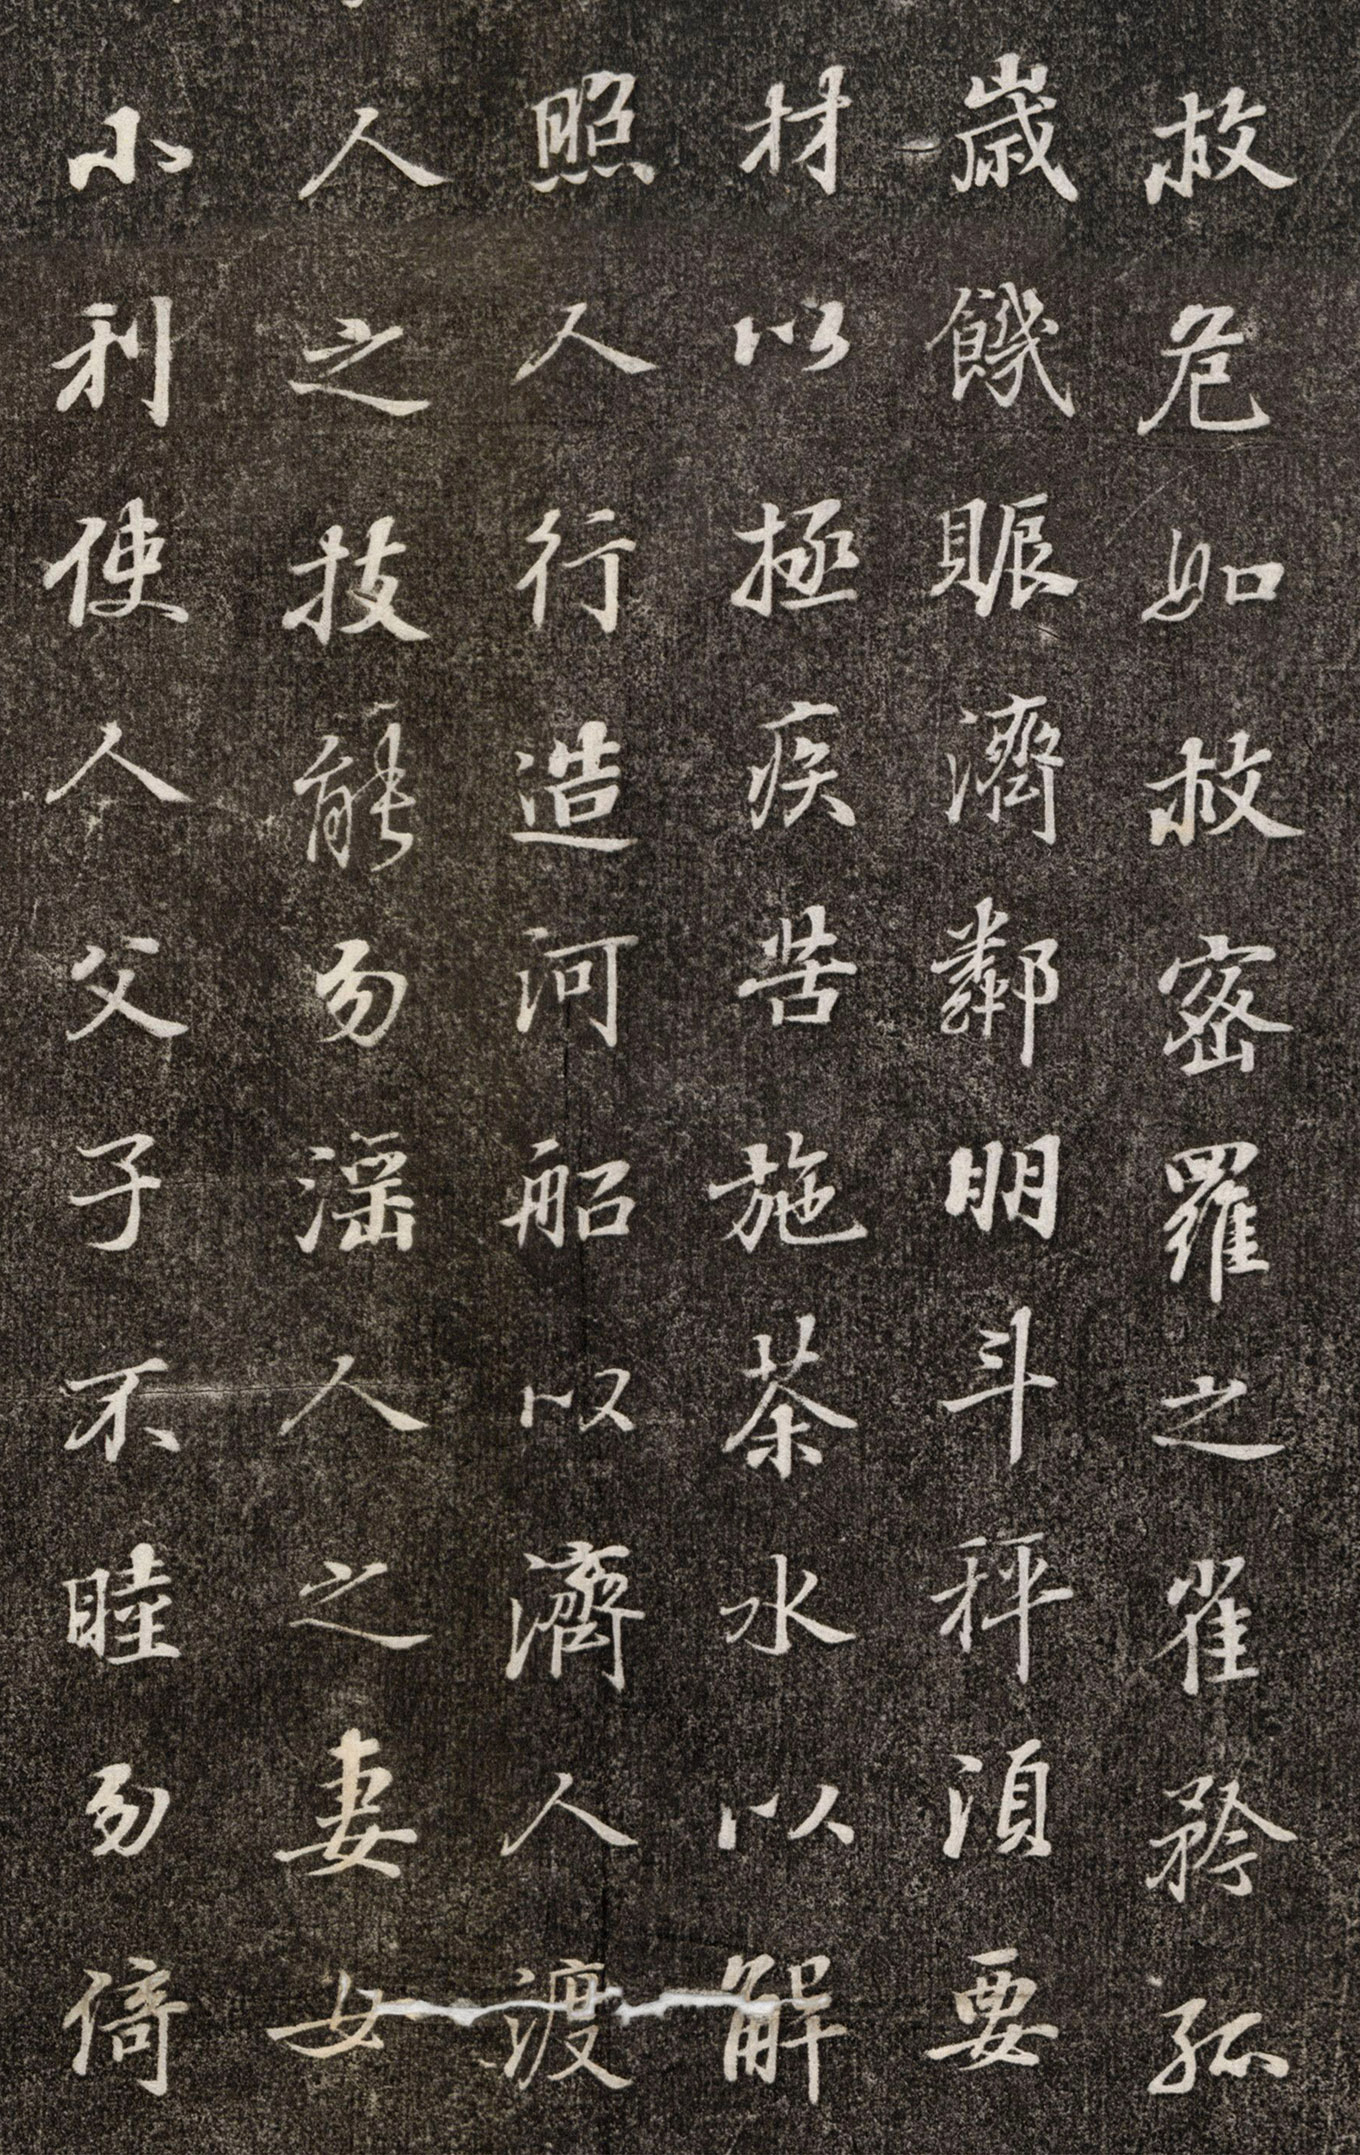 救危如救密羅之雀矜孤
歳饑賑濟鄰朋斗秤湏要
材以拯疾苦施茶水以解
照人行造河船以濟人渡
人之技能勿淫人之妻女
小利使人父子不睦勿倚